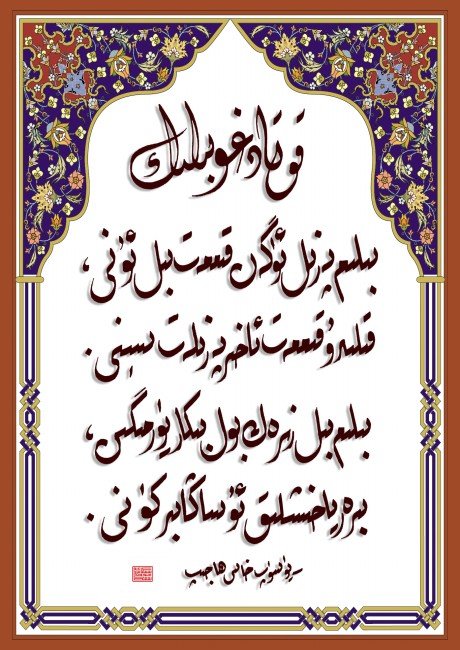 قۇتادغۇبىلىك
بىلىم پەزىل ئۆگەن قىممەت بىل ئۇنى،
قىلىدۇ قىممەت ئاخىر پەزىلەت سېنى.
بىلىم بىل زېرەك بول بىكار يۈرمىگىن،
بىرەر ياخشىلىق ئۇ ساڭا بىر كۈنى.
يۈسۈپ خاس ھاجىپ